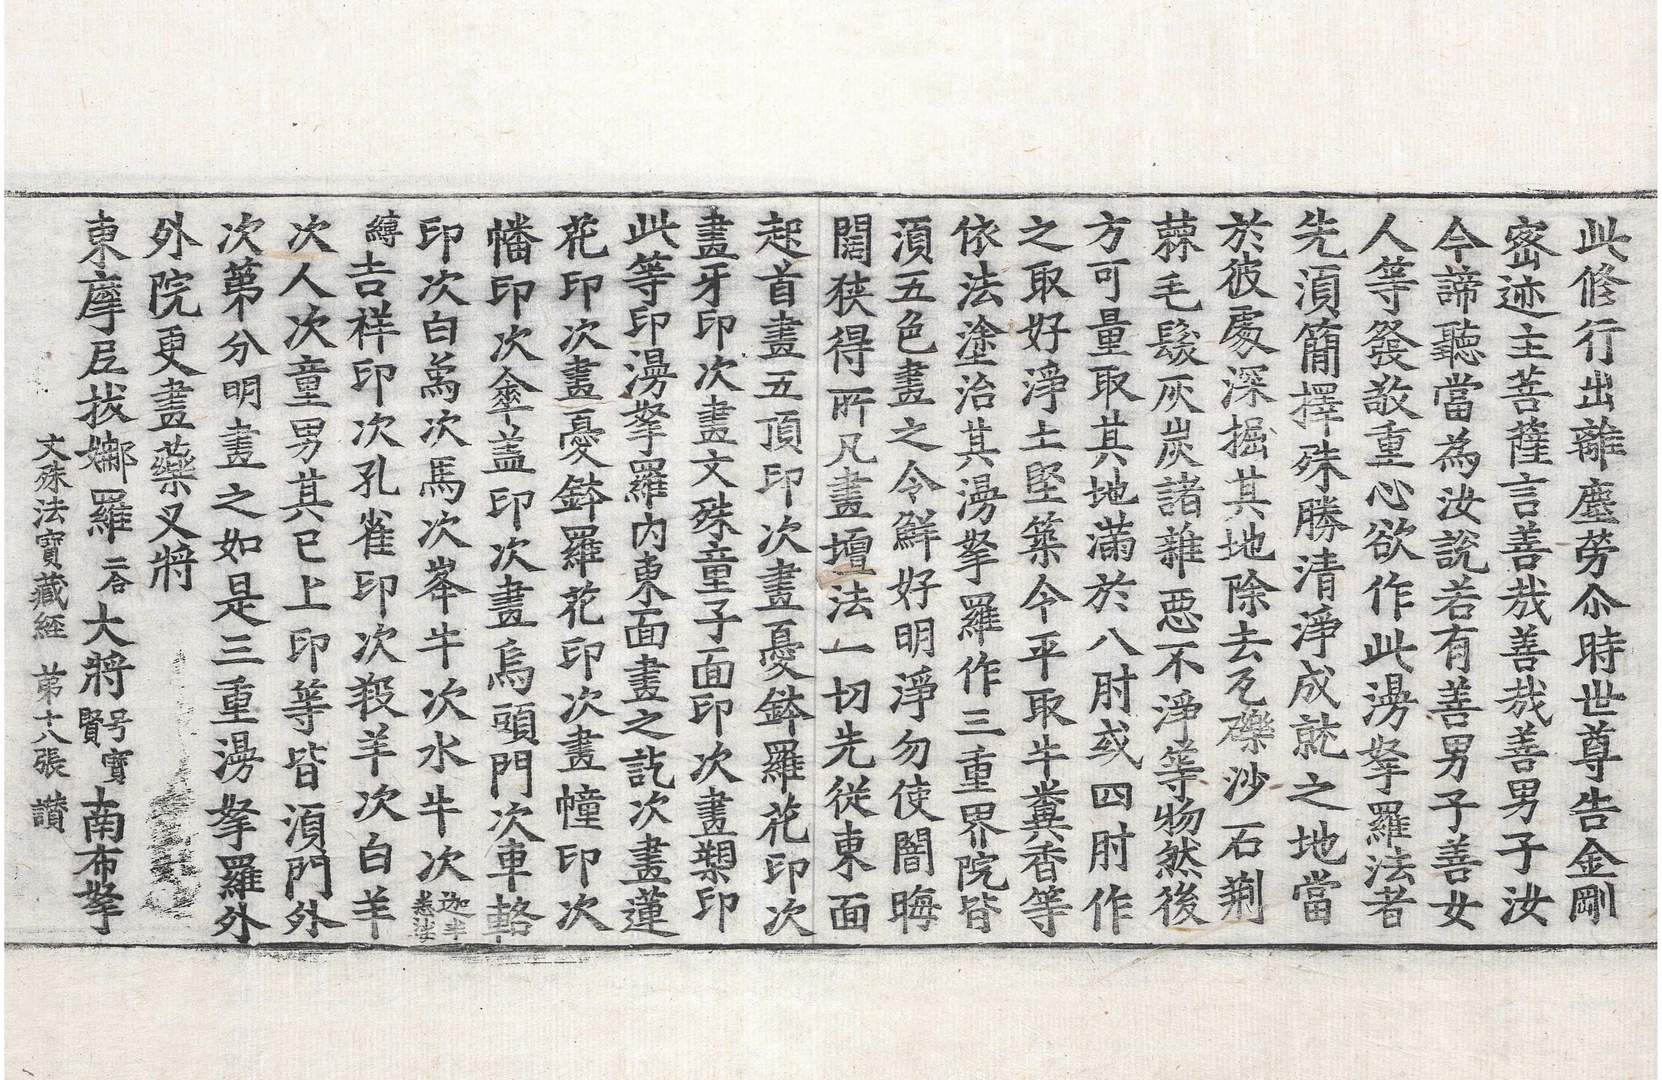 此修行出離塵勞尒時世尊告金剛
密迹主菩薩言善哉善哉善男子汝
今諦聽當為汝說若有善男子善女
人等發敬重心欲作此漫拏羅法者
先湏簡擇殊勝清淨成就之地當
於彼處深掘其地除去瓦礫沙石荆
蕀毛髮灰炭諸雜惡不淨等物然後
方可量取其地滿於八肘或四肘作
之取好淨土堅築令平取牛糞香等
依法塗治其漫拏羅作三重界院皆
湏五色畫之令鮮好明淨勿使闇晦
闊狹得所凡畫壇法一切先從東面
起首畫五頂印次畫憂鉢羅花印次
畫牙印次畫文殊童子面印次畫槊印
此等印漫拏羅內東面畫之訖次畫蓮
花印次畫憂鉢羅花印次畫幢印次
幡印次傘盖印次畫烏頭門次車輅
印次白象次馬次峯牛次水牛次迦半恚娑
縛吉祥印次孔雀印次羖羊次白羊
次人次童男其已上印等皆湏門外
次第分明畫之如是三重漫拏羅外
外院更畫藥叉將
東摩尼拔娜羅二合大將号寶賢南布拏
文殊法寶藏經 第十八張 讃